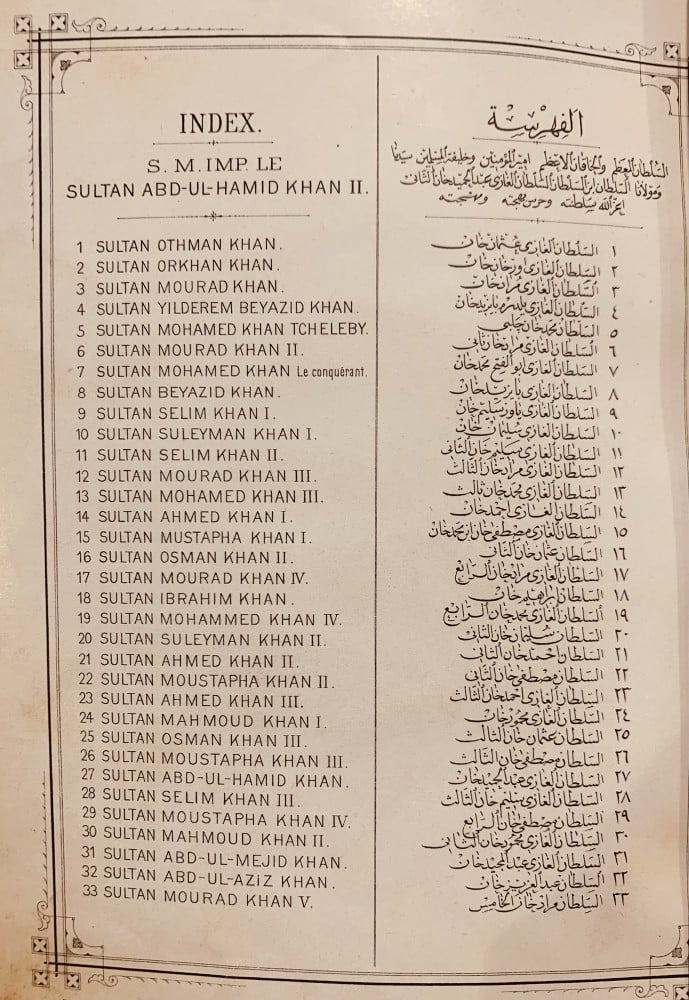 INDEX.
S. M. IMP. LE
SULTAN ABD-UL-HAMID KHAN II.
1 SULTAN OTHMAN KHAN.
2 SULTAN ORKHAN KHAN.
3 SULTAN MOURAD KHAN.
4 SULTAN YILDEREM BEYAZID KHAN.
5 SULTAN MOHAMED KHAN TCHELEBY.
6 SULTAN MOURAD KHAN II.
7 SULTAN MOHAMED KHAN Le conquérant.
8 SULTAN BEYAZID KHAN.
9 SULTAN SELIM KHAN I.
10 SULTAN SULEYMAN KHAN I.
11 SULTAN SELIM KHAN II.
12 SULTAN MOURAD KHAN III.
13 SULTAN MOHAMED KHAN III.
14 SULTAN AHMED KHAN I.
15 SULTAN MUSTAPHA KHAN I.
16 SULTAN OSMAN KHAN II.
17 SULTAN MOURAD KHAN IV.
18 SULTAN IBRAHIM KHAN.
19 SULTAN MOHAMMED KHAN IV.
20 SULTAN SULEYMAN KHAN II.
21 SULTAN AHMED KHAN II.
22 SULTAN MOUSTAPHA KHAN II.
23 SULTAN AHMED KHAN III.
24 SULTAN MAHMOUD KHAN I.
25 SULTAN OSMAN KHAN III.
26 SULTAN MOUSTAPHA KHAN III.
27 SULTAN ABD-UL-HAMID KHAN.
28 SULTAN SELIM KHAN III.
29 SULTAN MOUSTAPHA KHAN IV.
30 SULTAN MAHMOUD KHAN II.
31 SULTAN ABD-UL-MEJID KHAN.
32 SULTAN ABD-UL-AZIZ KHAN.
33 SULTAN MOURAD KHAN V.
الفهرسة
السلطان المعظم والخاقان الاعظم امير المؤمنين وخليفة المسلمين سيدنا
ومولانا السلطان ابن السلطان السلطان الغازي عبد الحميد خان الثانى
اعز الله سلطنته وحرس مهجته
١ السلطان الغازي عثمان خان
٢ السلطان الغازي اورخان خان
٣ السلطان الغازي مراد خان
٤ السلطان الغازي يلدرم بايزيد خان
٥ السلطان محمد خان چلبي
٦ السلطان الغازي مراد خان ثاني
٧ السلطان الغازي ابو الفتح محمد خان
٨ السلطان الغازي بايزيد خان
٩ السلطان الغازي ياوز سليم خان
١٠ السلطان الغازي سليمان خان
١١ السلطان الغازي سليم خان الثانى
١٢ السلطان الغازي مراد خان الثالث
١٣ السلطان الغازي محمد خان ثالث
١٤ السلطان الغازي احمد خان
١٥ السلطان الغازي مصطفى خان ابن محمد خان
١٦ السلطان عثمان خان الثانى
١٧ السلطان الغازي مراد خان الرابع
١٨ السلطان ابراهيم خان
١٩ السلطان الغازي محمد خان الرابع
٢٠ السلطان سليمان خان الثانى
٢١ السلطان احمد خان الثانى
٢٢ السلطان مصطفى خان الثانى
٢٣ السلطان الغازي احمد خان الثالث
٢٤ السلطان الغازي محمود خان
٢٥ السلطان عثمان خان الثالث
٢٦ السلطان مصطفى خان الثالث
٢٧ السلطان الغازي عبد الحميد خان
٢٨ السلطان الغازي سليم خان الثالث
٢٩ السلطان مصطفى خان الرابع
٣٠ السلطان الغازي محمود خان الثانى
٣١ السلطان الغازي عبد المجيد خان
٣٢ السلطان عبد العزيز خان
٣٣ السلطان مراد خان الخامس